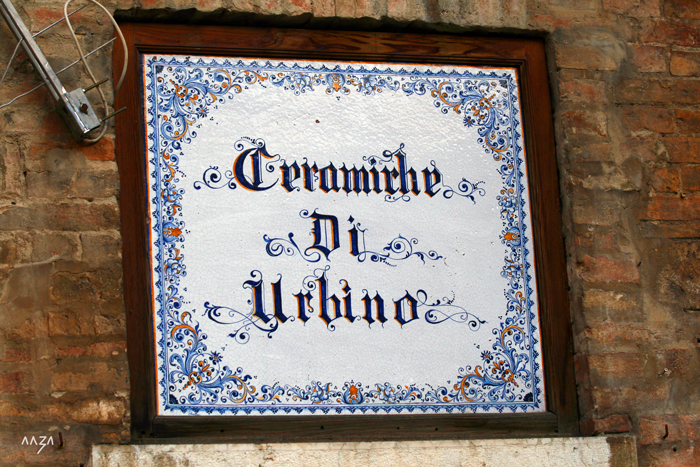 Ceramiche
Di
Urbino